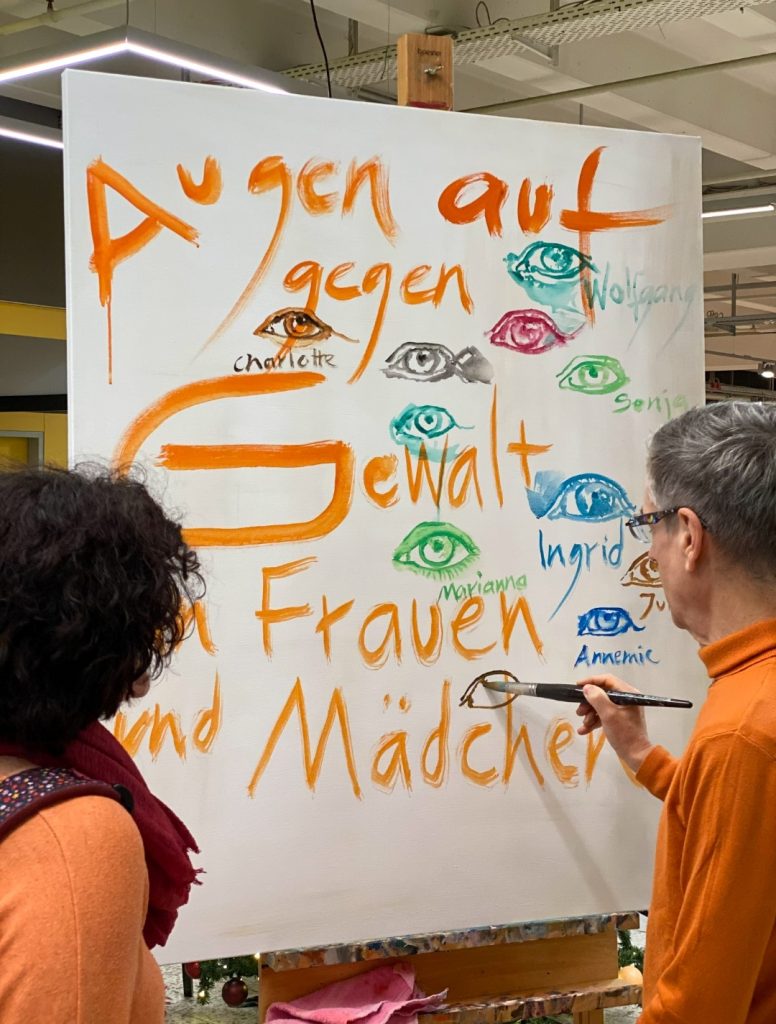 Augen auf
gegen
Wolfgang
Charlotte
Sonja
Gewalt
Ingrid
Marianna
Ju
n Frauen
Annemie
und Mädchen